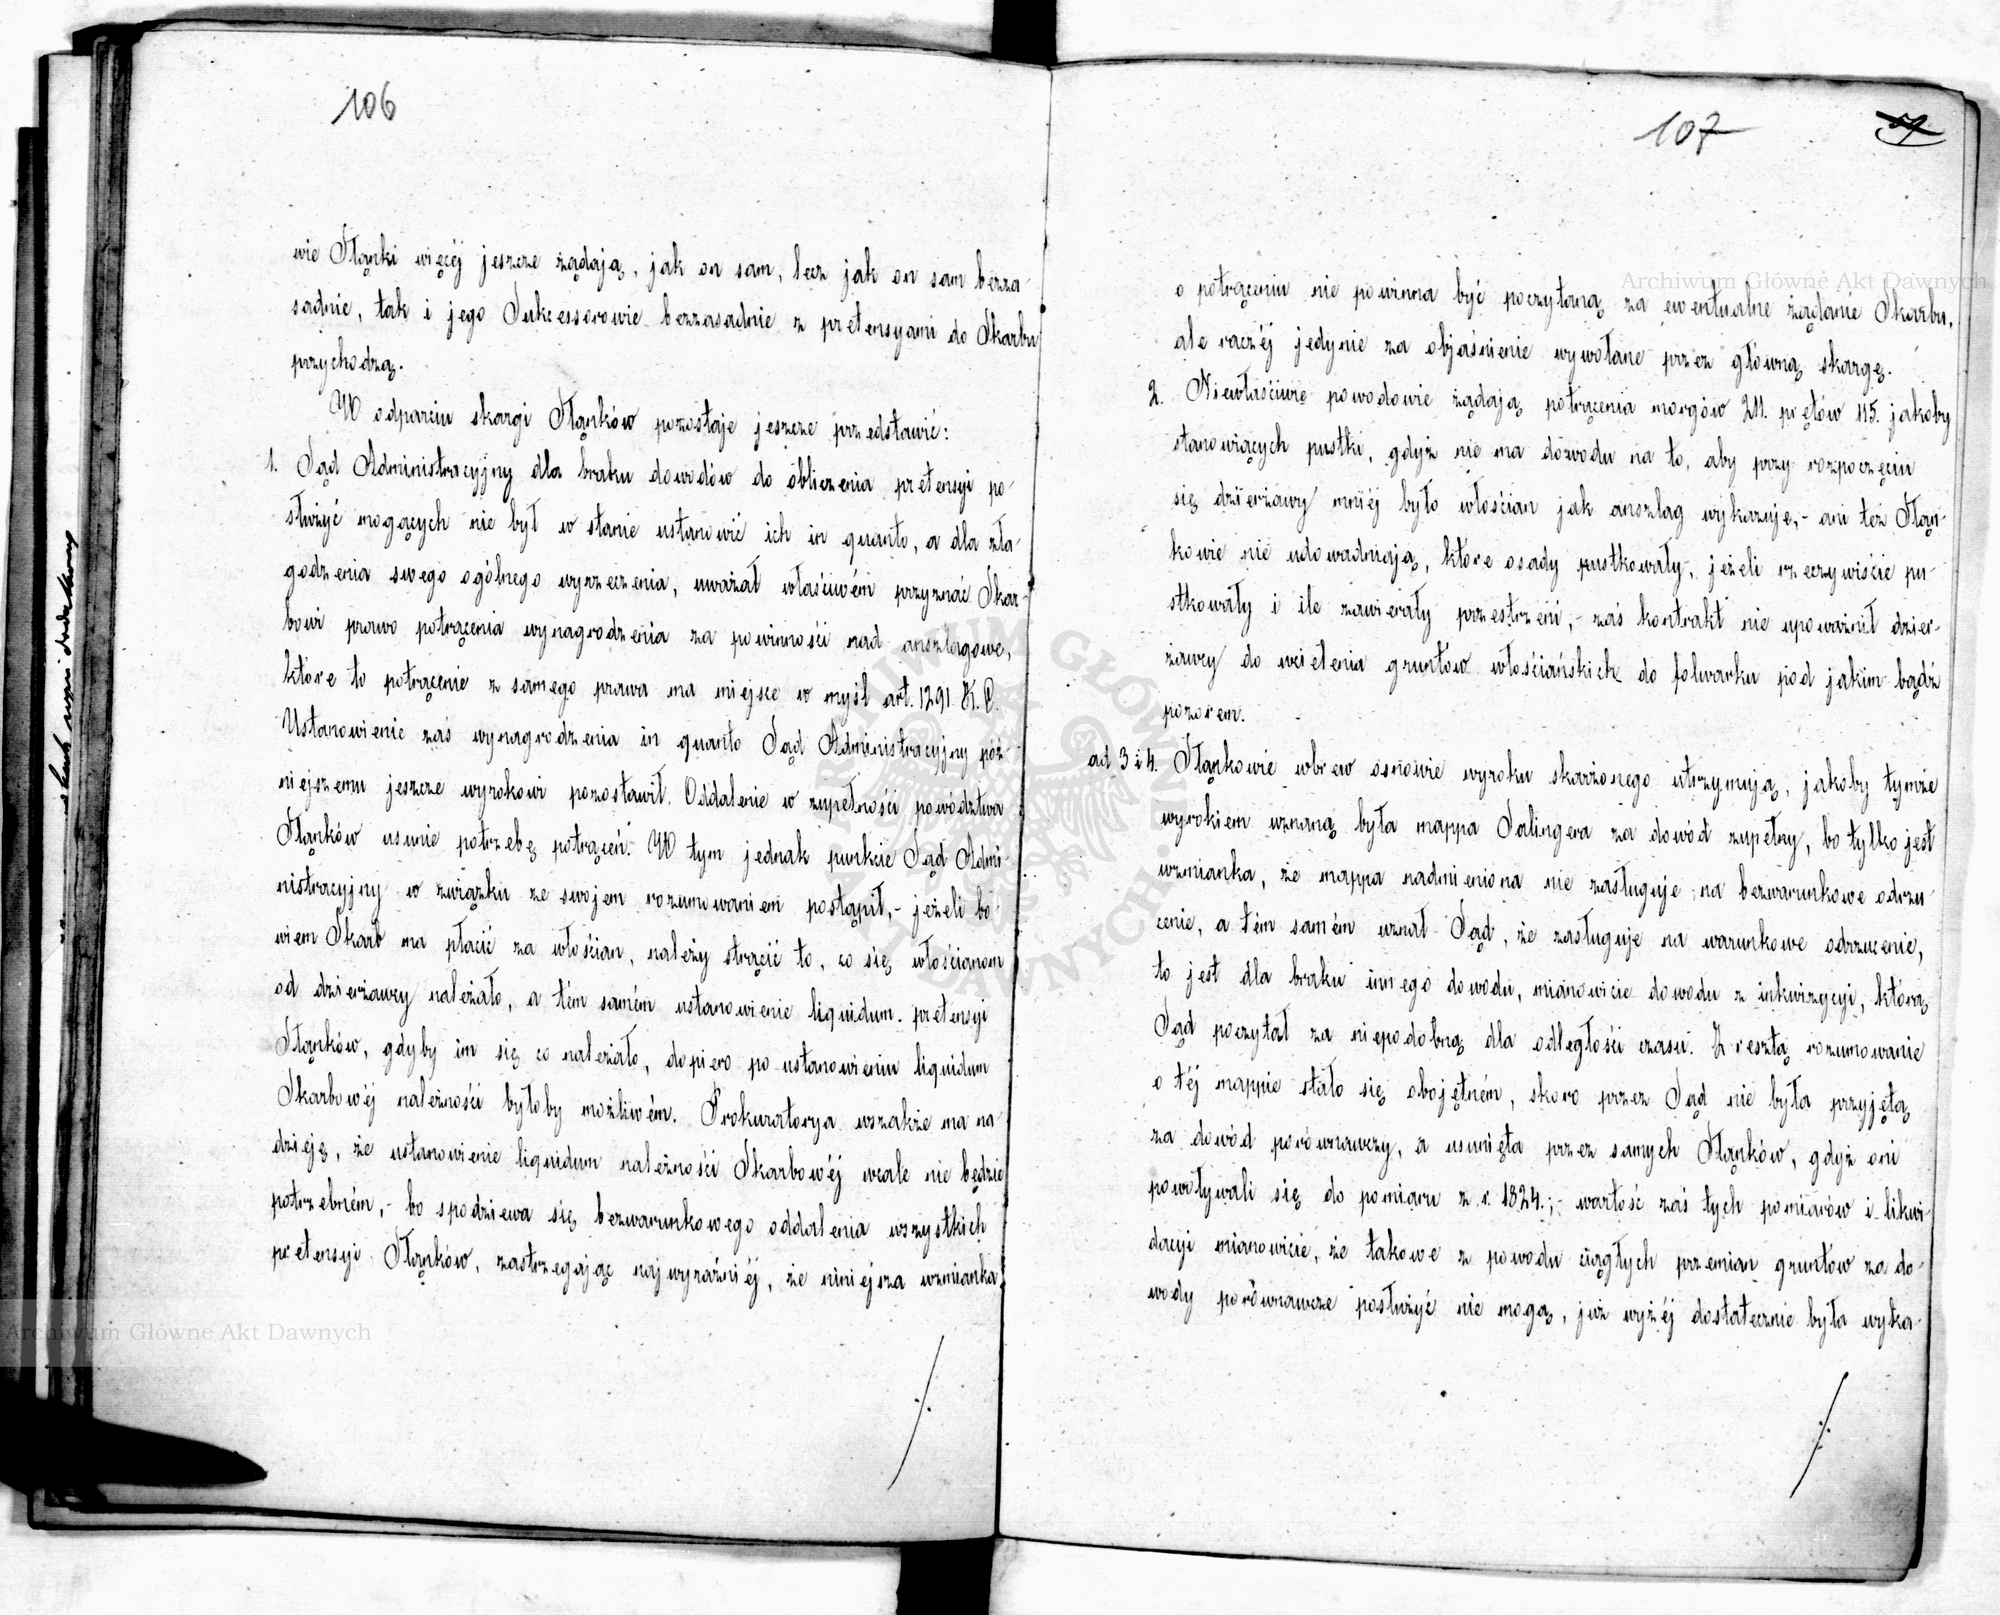 106
wie Słąnki więcéj jeszcze żądają, jak on sam, lecz jak on sam bezza-
sadnie, tak i jego Sukcessorowie bezzasadnie z pretensyami do Skarbu
przychodzą.
W odparciu skargi Słąnków pozostaje jeszcze przedstawić:
1. Sąd Administracyjny dla braku dowodów do obliczenia pretensyi po-
służyć mogących nie był w stanie ustanowić ich in quanto, a dla zła-
godzenia swego ogólnego wyrzeczenia, uważał właściwém przyznać Skar-
bowi prawo potrącenia wynagrodzenia za powinności nad anszlagowe,
które to potrącenie z samego prawa ma miejsce w myśl art. 1291 K.C.
Ustanowienie zaś wynagrodzenia in quanto Sąd Administracyjny póź-
niejszemu jeszcze wyrokowi pozostawił. Oddalenie w zupełności powództwa
Słąnków usunie potrzebę potrąceń. W tym jednak punkcie Sąd Admi-
nistracyjny w związku ze swojem rozumowaniem postąpił,- jeżeli bo-
wiem Skarb ma płacić za włościan, należy strącić to, co się włościanom
od dzierżawcy należało, a tém samém ustanowienie liquidum pretensyi
Słąnków, gdyby im się co należało, dopiero po ustanowieniu liquidum
Skarbowéj należności byłoby możliwém. Prokuratorya wszakże ma na-
dzieję, że ustanowienie liquidum należności Skarbowéj wcale nie będzie
potrzebném,- bo spodziewa się bezwarunkowego oddalenia wszystkich
pretensyi Słąnków, zastrzegając najwyraźniéj, że niniejsza wzmianka
107
o potrąceniu nie powinna być poczytaną za ewentualne żądanie Skarbu,
ale raczéj jedynie za objaśnienie wywołane przez główną skargę.
2. Niewłaściwie powodowie żądają potrącenia morgów 211. prętów 115. jakoby
stanowiących pustki, gdyż nie ma dowodu na to, aby przy rozpoczęciu
się dzierżawy mniéj było włościan jak anszlag wykazuje,- ani też Słąn-
kowie nie udowadniają, które osady pustkowały, jeżeli rzeczywiście pu-
stkowały i ile zawierały przestrzeni,- zaś kontrakt nie upoważnił dzier-
żawcy do wcielenia gruntów włościańskich do folwarku pod jakim-bądź
pozorem.
ad 3 i 4. Słąnkowie wbrew osnowie wyroku skarżonego utrzymują, jakoby tymże
wyrokiem uznaną była mappa Salingera za dowód zupełny, bo tylko jest
wzmianka, że mappa nadmieniona nie zasługuje na bezwarunkowe odrzu-
cenie, a tém samém uznał Sąd, że zasługuje na warunkowe odrzucenie,
to jest dla braku innego dowodu, mianowicie dowodu z inkwizycyi, którą
Sąd poczytał za niepodobną dla odległości czasu. Zresztą rozumowanie
o téj mappie stało się obojętném, skoro przez Sąd nie była przyjętą
za dowód porównawczy, a usunięta przez samych Słąnków, gdyż oni
powoływali się do pomiaru z r. 1824.;- wartość zaś tych pomiarów i likwi-
dacyi mianowicie, że takowe z powodu ciągłych przemian gruntów za do-
wody porównawcze posłużyć nie mogą, już wyżéj dostatecznie była wyka-
Archiwum Główne Akt Dawnych
Archiwum Główne Akt Dawnych
ARCHIWUM GŁÓWNE AKT DAWNYCH